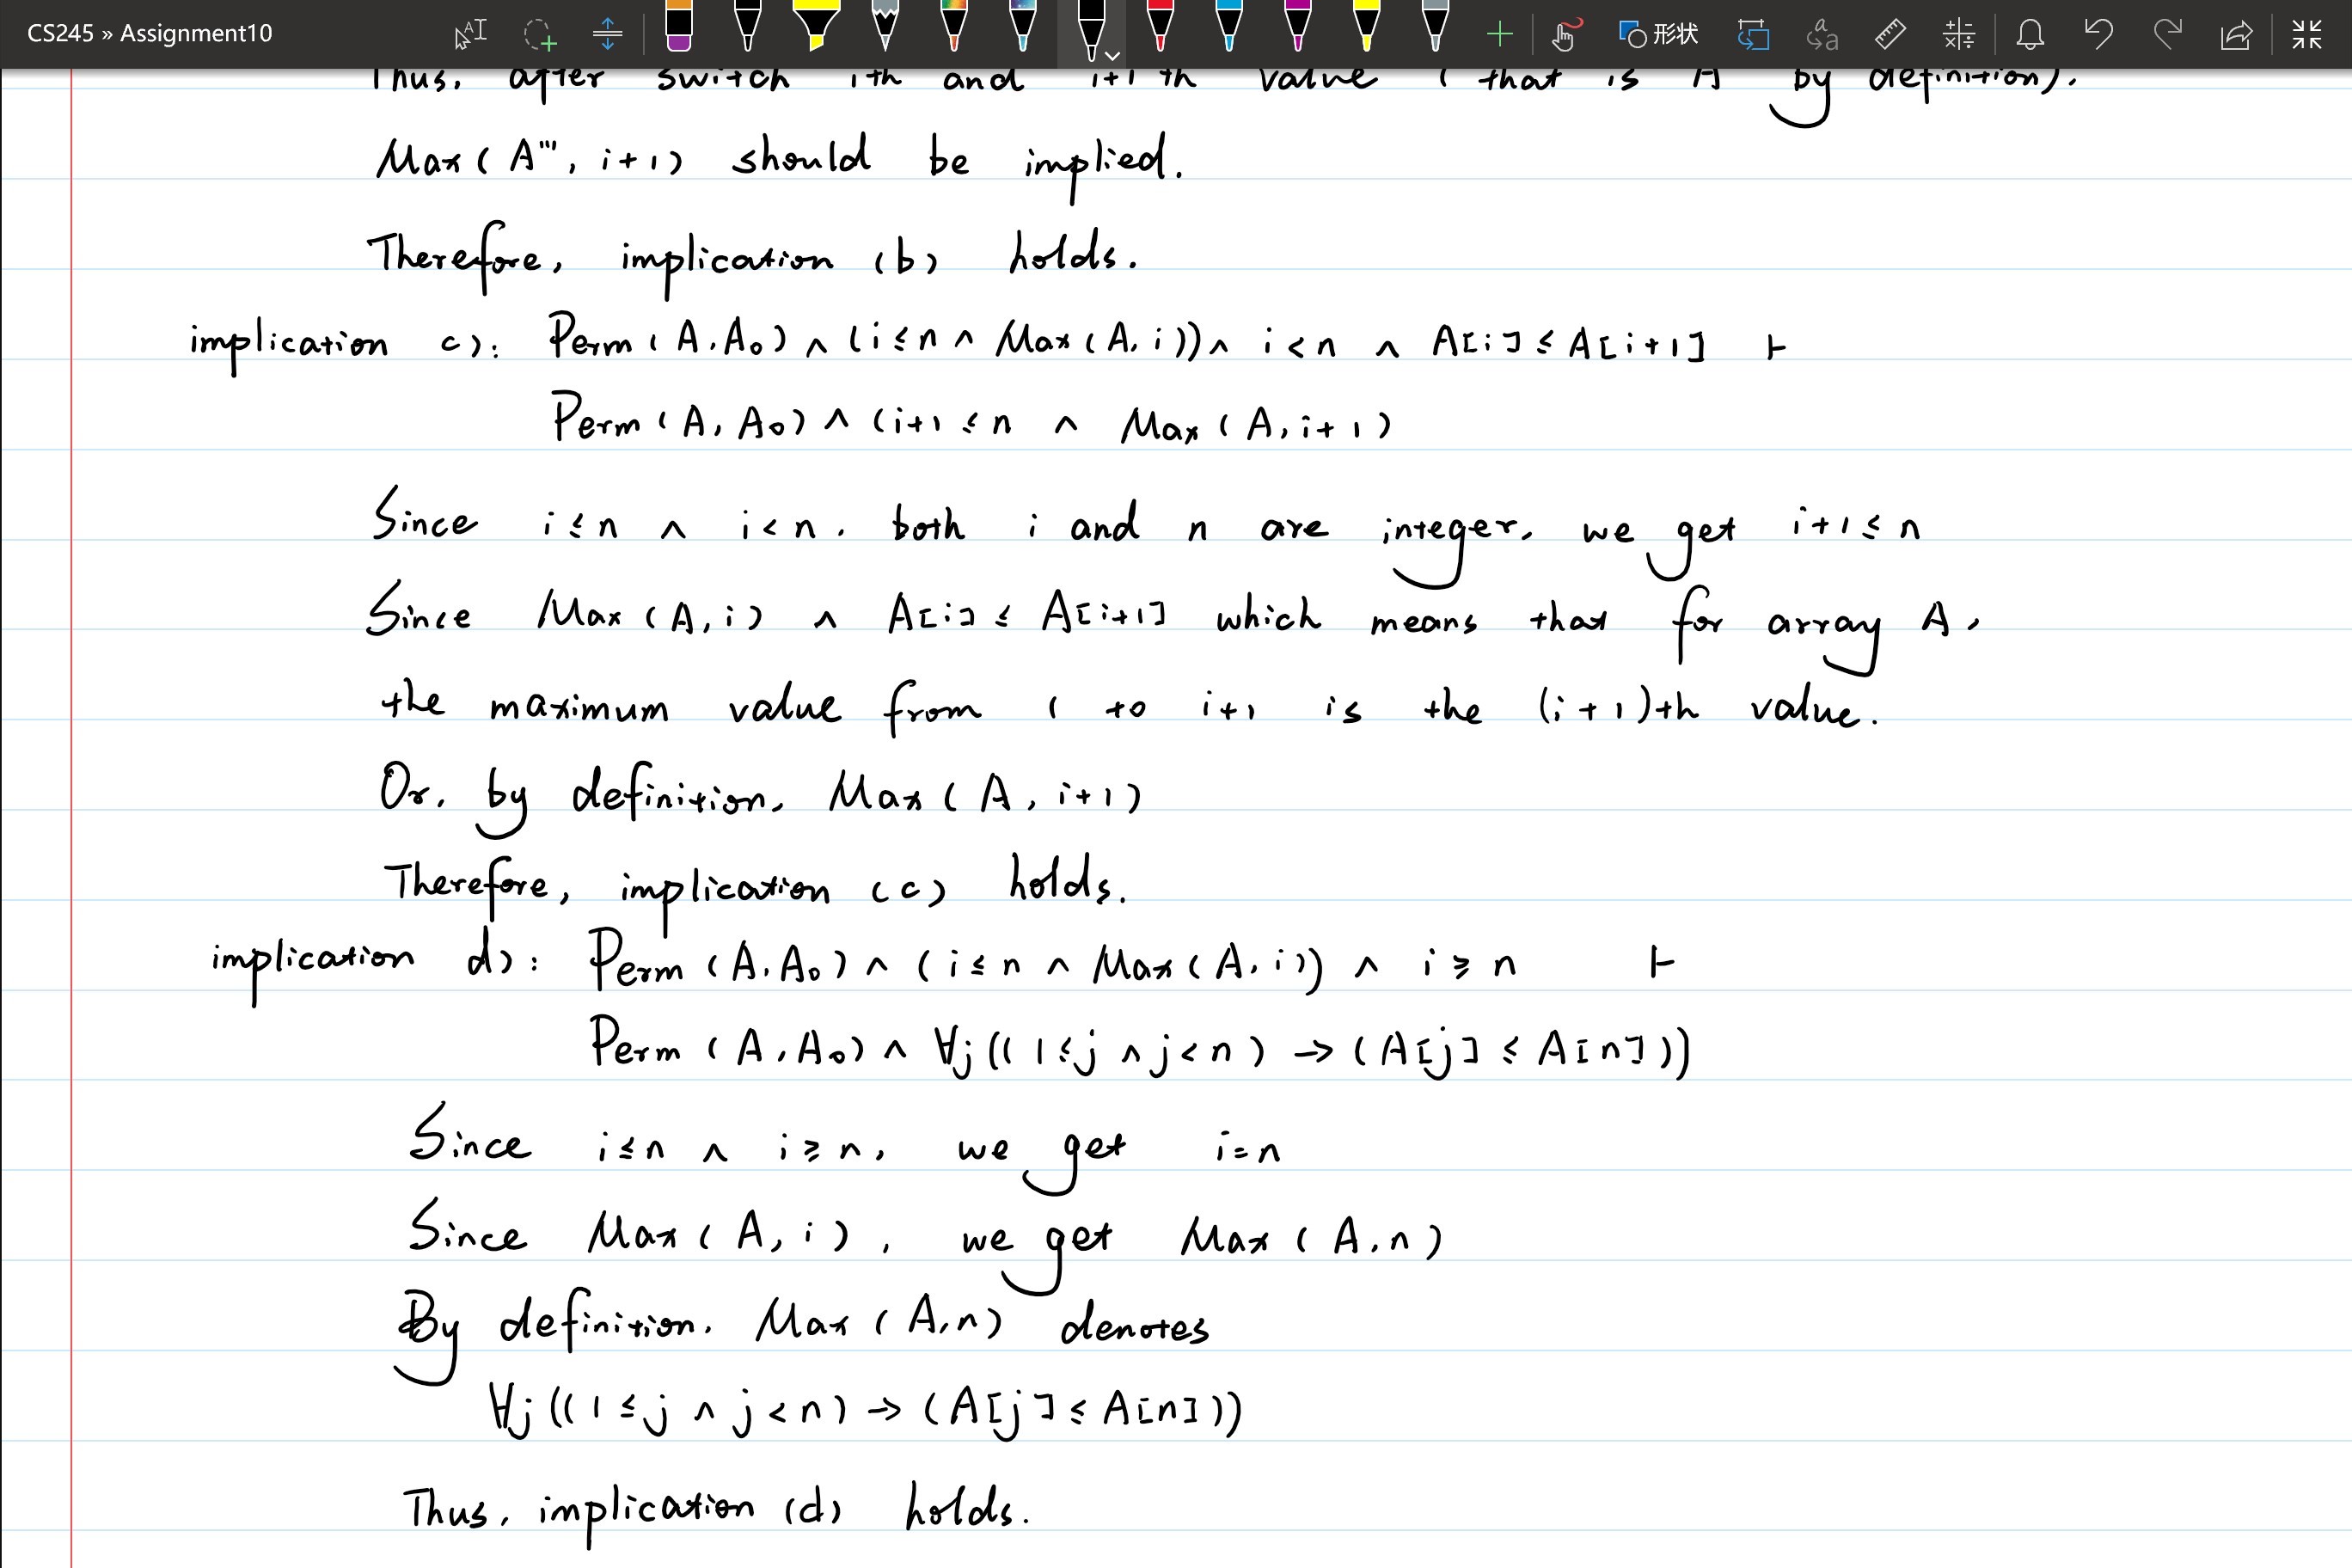 CS245 » Assignment10
形状
Thus, after switch ith and i+1 th value ( that is A by definition).
Max( A''', i+1) should be implied.
Therefore, implication (b) holds.
implication c): Perm( A, A₀) ∧ (i≤n ∧ Max(A, i)) ∧ i<n ∧ A[i] ≤ A[i+1] ⊢
Perm( A, A₀) ∧ (i+1 ≤ n ∧ Max( A, i+1)
Since i≤n ∧ i<n, both i and n are integer, we get i+1≤n
Since Max(A, i) ∧ A[i] ≤ A[i+1] which means that for array A,
the maximum value from 1 to i+1 is the (i+1)th value.
Or, by definition, Max( A, i+1)
Therefore, implication (c) holds.
implication d): Perm (A, A₀) ∧ (i≤n ∧ Max(A, i)) ∧ i≥n ⊢
Perm (A, A₀) ∧ ∀j((1≤j ∧ j<n) → (A[j] ≤ A[n]))
Since i≤n ∧ i≥n, we get i=n
Since Max( A, i), we get Max ( A, n)
By definition, Max (A, n) denotes
∀j((1≤j ∧ j<n) → (A[j] ≤ A[n]))
Thus, implication (d) holds.